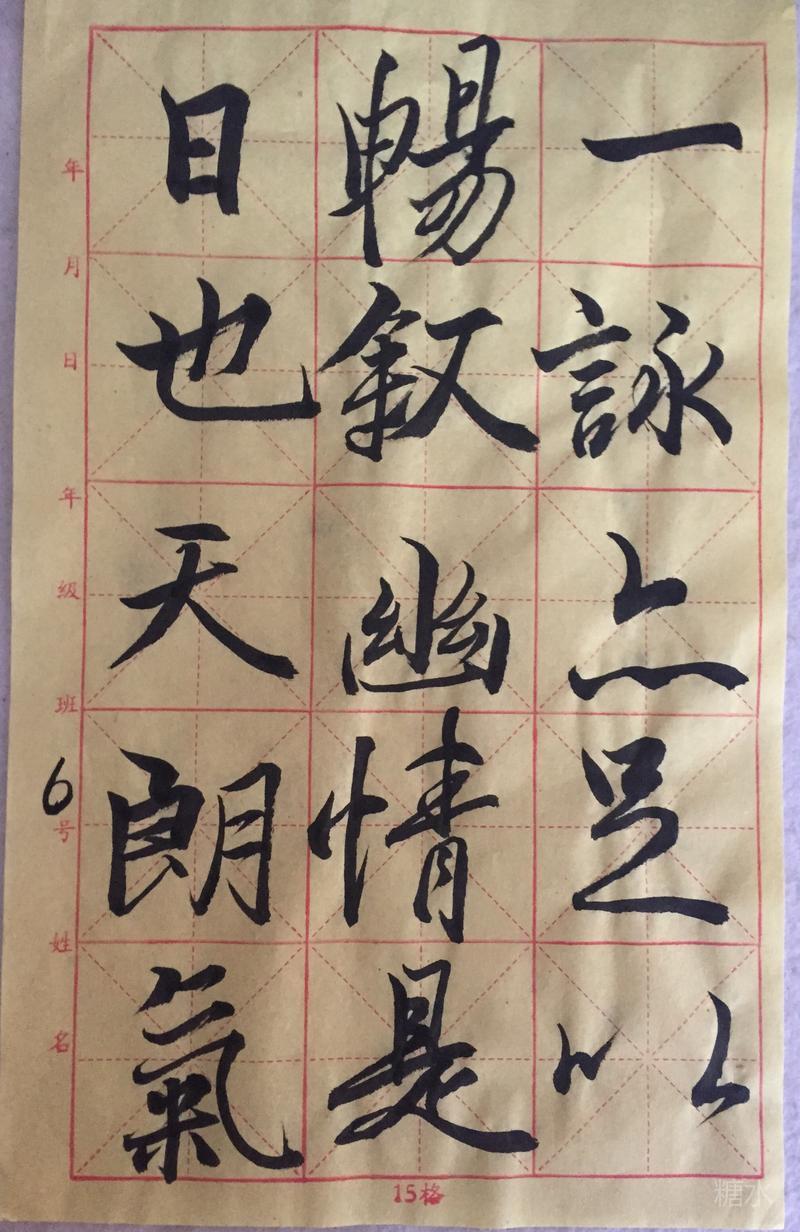 一詠亦足以
暢叙幽情是
日也天朗氣
年月日
年級班
6号
姓名
15格
糖水